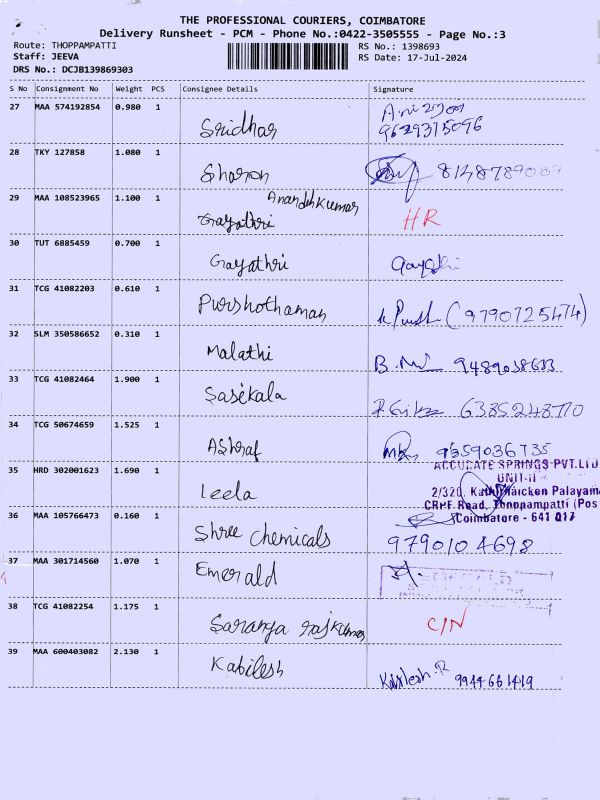 THE PROFESSIONAL COURIERS, COIMBATORE
Delivery Runsheet - PCM - Phone No.:0422-3505555 - Page No.:3
Route: THOPPAMPATTI
Staff: JEEVA
DRS No.: DCJB139869303
RS No.: 1398693
RS Date: 17-Jul-2024
S No Consignment No Weight PCS Consignee Details Signature
27 MAA 574192854 0.980 1
Sridhar
9629375096
28 TKY 127858 1.080 1
Sharon
29 MAA 108523965 1.100 1
Gayathri HR
30 TUT 6885459 0.700 1
Gayathri
31 TCG 41082203 0.610 1
Purshothaman (9790725474)
32 SLM 350586652 0.310 1
Malathi
33 TCG 41082464 1.900 1
Sasekala
34 TCG 50674659 1.525 1
Ashraf
35 HRD 302001623 1.690 1
Leela
ACCURATE SPRINGS PVT.LTD
UNIT-II
2/320, Palayam
CRPF Road, Thoppampatti (Pos
Coimbatore - 641 017
36 MAA 105766473 0.160 1
Shree Chemicals 9790104698
37 MAA 301714560 1.070 1
Emerald
38 TCG 41082254 1.175 1
Saranya rajkumar
39 MAA 600403082 2.130 1
Kabilesh
9944661419